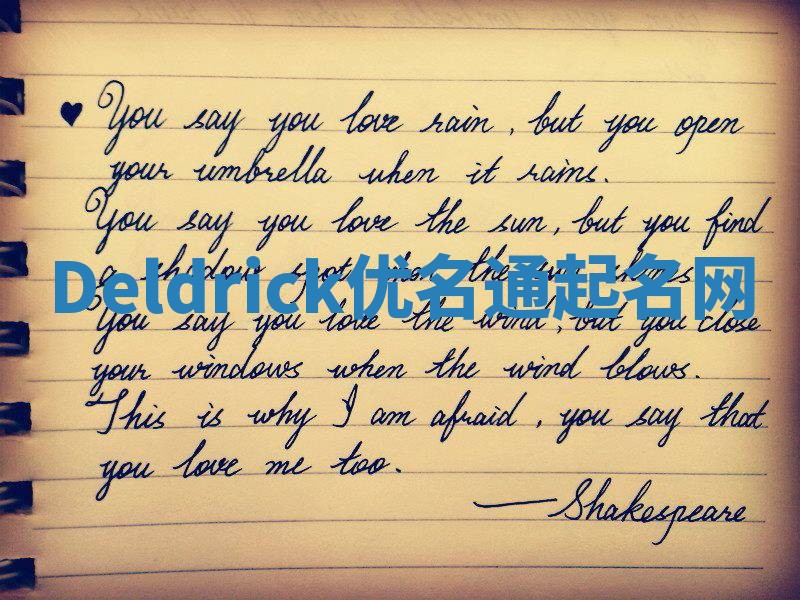 ♥ You say you love rain, but you open
your umbrella when it rains.
You say you love the sun, but you find
a shadow spot when the sun shines
Deldrick优名通起名网
You say you love the wind, but you close
your windows when the wind blows.
This is why I am afraid, you say that
you love me too.
—Shakespeare